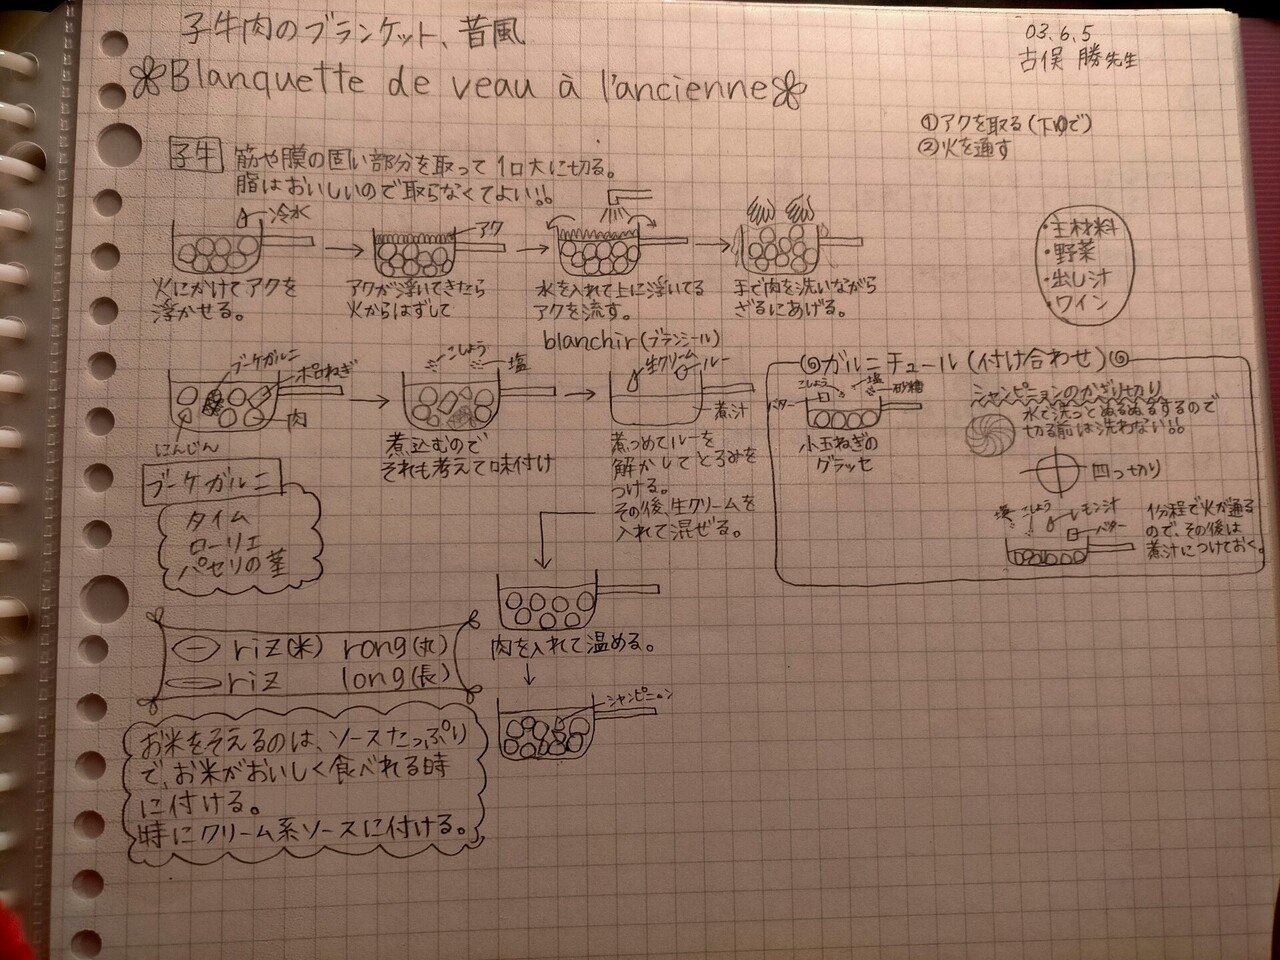 子牛肉のブランケット、昔風
03.6.5
古俣 勝先生
Blanquette de veau à l'ancienne
①アクを取る(下ゆで)
②火を通す
子牛
筋や膜の固い部分を取って1口大に切る。
脂はおいしいので取らなくてよい!!
冷水
アク
火にかけてアクを
浮かせる。
アクが浮いてきたら
火からはずして
水を入れて上に浮いてる
アクを流す。
手で肉を洗いながら
ざるにあげる。
・主材料
・野菜
・出し汁
・ワイン
blanchir(ブランシール)
ブーケガルニ
ポロねぎ
肉
にんじん
こしょう
塩
煮込むので
それも考えて味付け
生クリーム
ルー
煮汁
煮つめてルーを
解かしてとろみを
つける。
その後、生クリームを
入れて混ぜる。
ガルニチュール(付け合わせ)
こしょう
塩
砂糖
バター
小玉ねぎの
グラッセ
シャンピニョンのかざり切り
水で洗うとぬるぬるするので
切る前は洗わない!!
四つ切り
塩
こしょう
レモン汁
バター
1分程で火が通る
ので、その後は
煮汁につけておく。
ブーケガルニ
タイム
ローリエ
パセリの茎
肉を入れて温める。
シャンピニョン
riz(米) rong(丸)
riz long(長)
お米をそえるのは、ソースたっぷり
で、お米がおいしく食べれる時
に付ける。
時にクリーム系ソースに付ける。